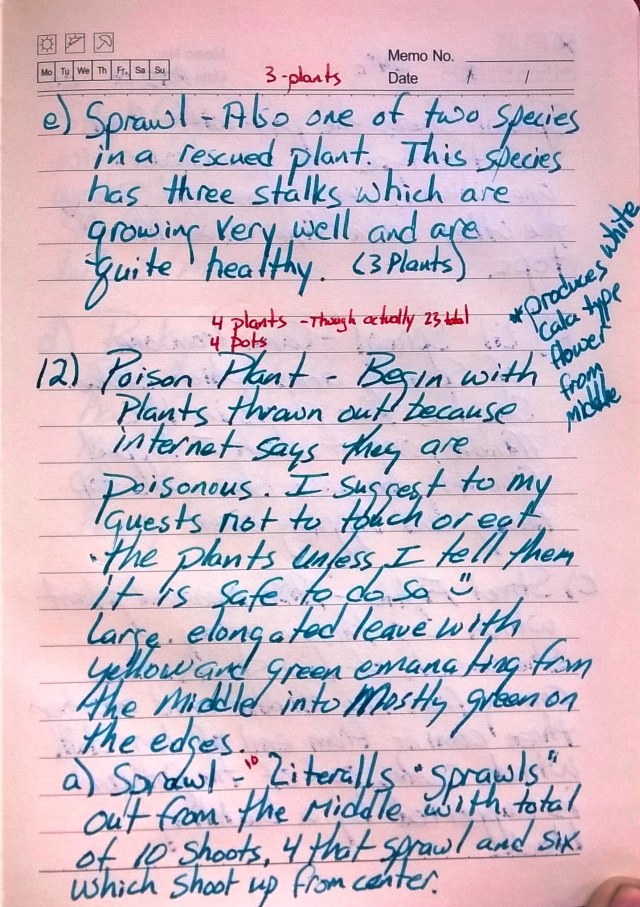 Memo No.
Mo Tu We Th Fr Sa Su
Date / /
3-plants
e) Sprawl - Also one of two species
in a rescued plant. This species
has three stalks which are
growing very well and are
quite healthy. (3 Plants)
*produces white
Cala type
flower
from
middle
4 plants - Though actually 23 total
4 pots
12) Poison Plant - Begin with
Plants thrown out because
internet says they are
poisonous. I suggest to my
guests not to touch or eat
the plants unless I tell them
it is safe to do so
Large elongated leave with
yellow and green emanating from
the Middle into Mostly green on
the edges.
a) Sprawl - "10 Literalls "sprawls"
out from the Middle with total
of 10 shoots, 4 that sprawl and six
which shoot up from center.